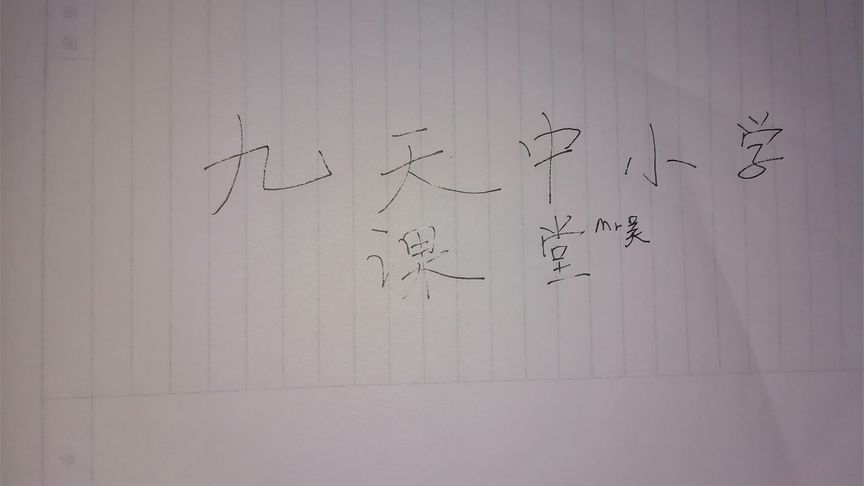 九天中小学
课堂 Mr吴